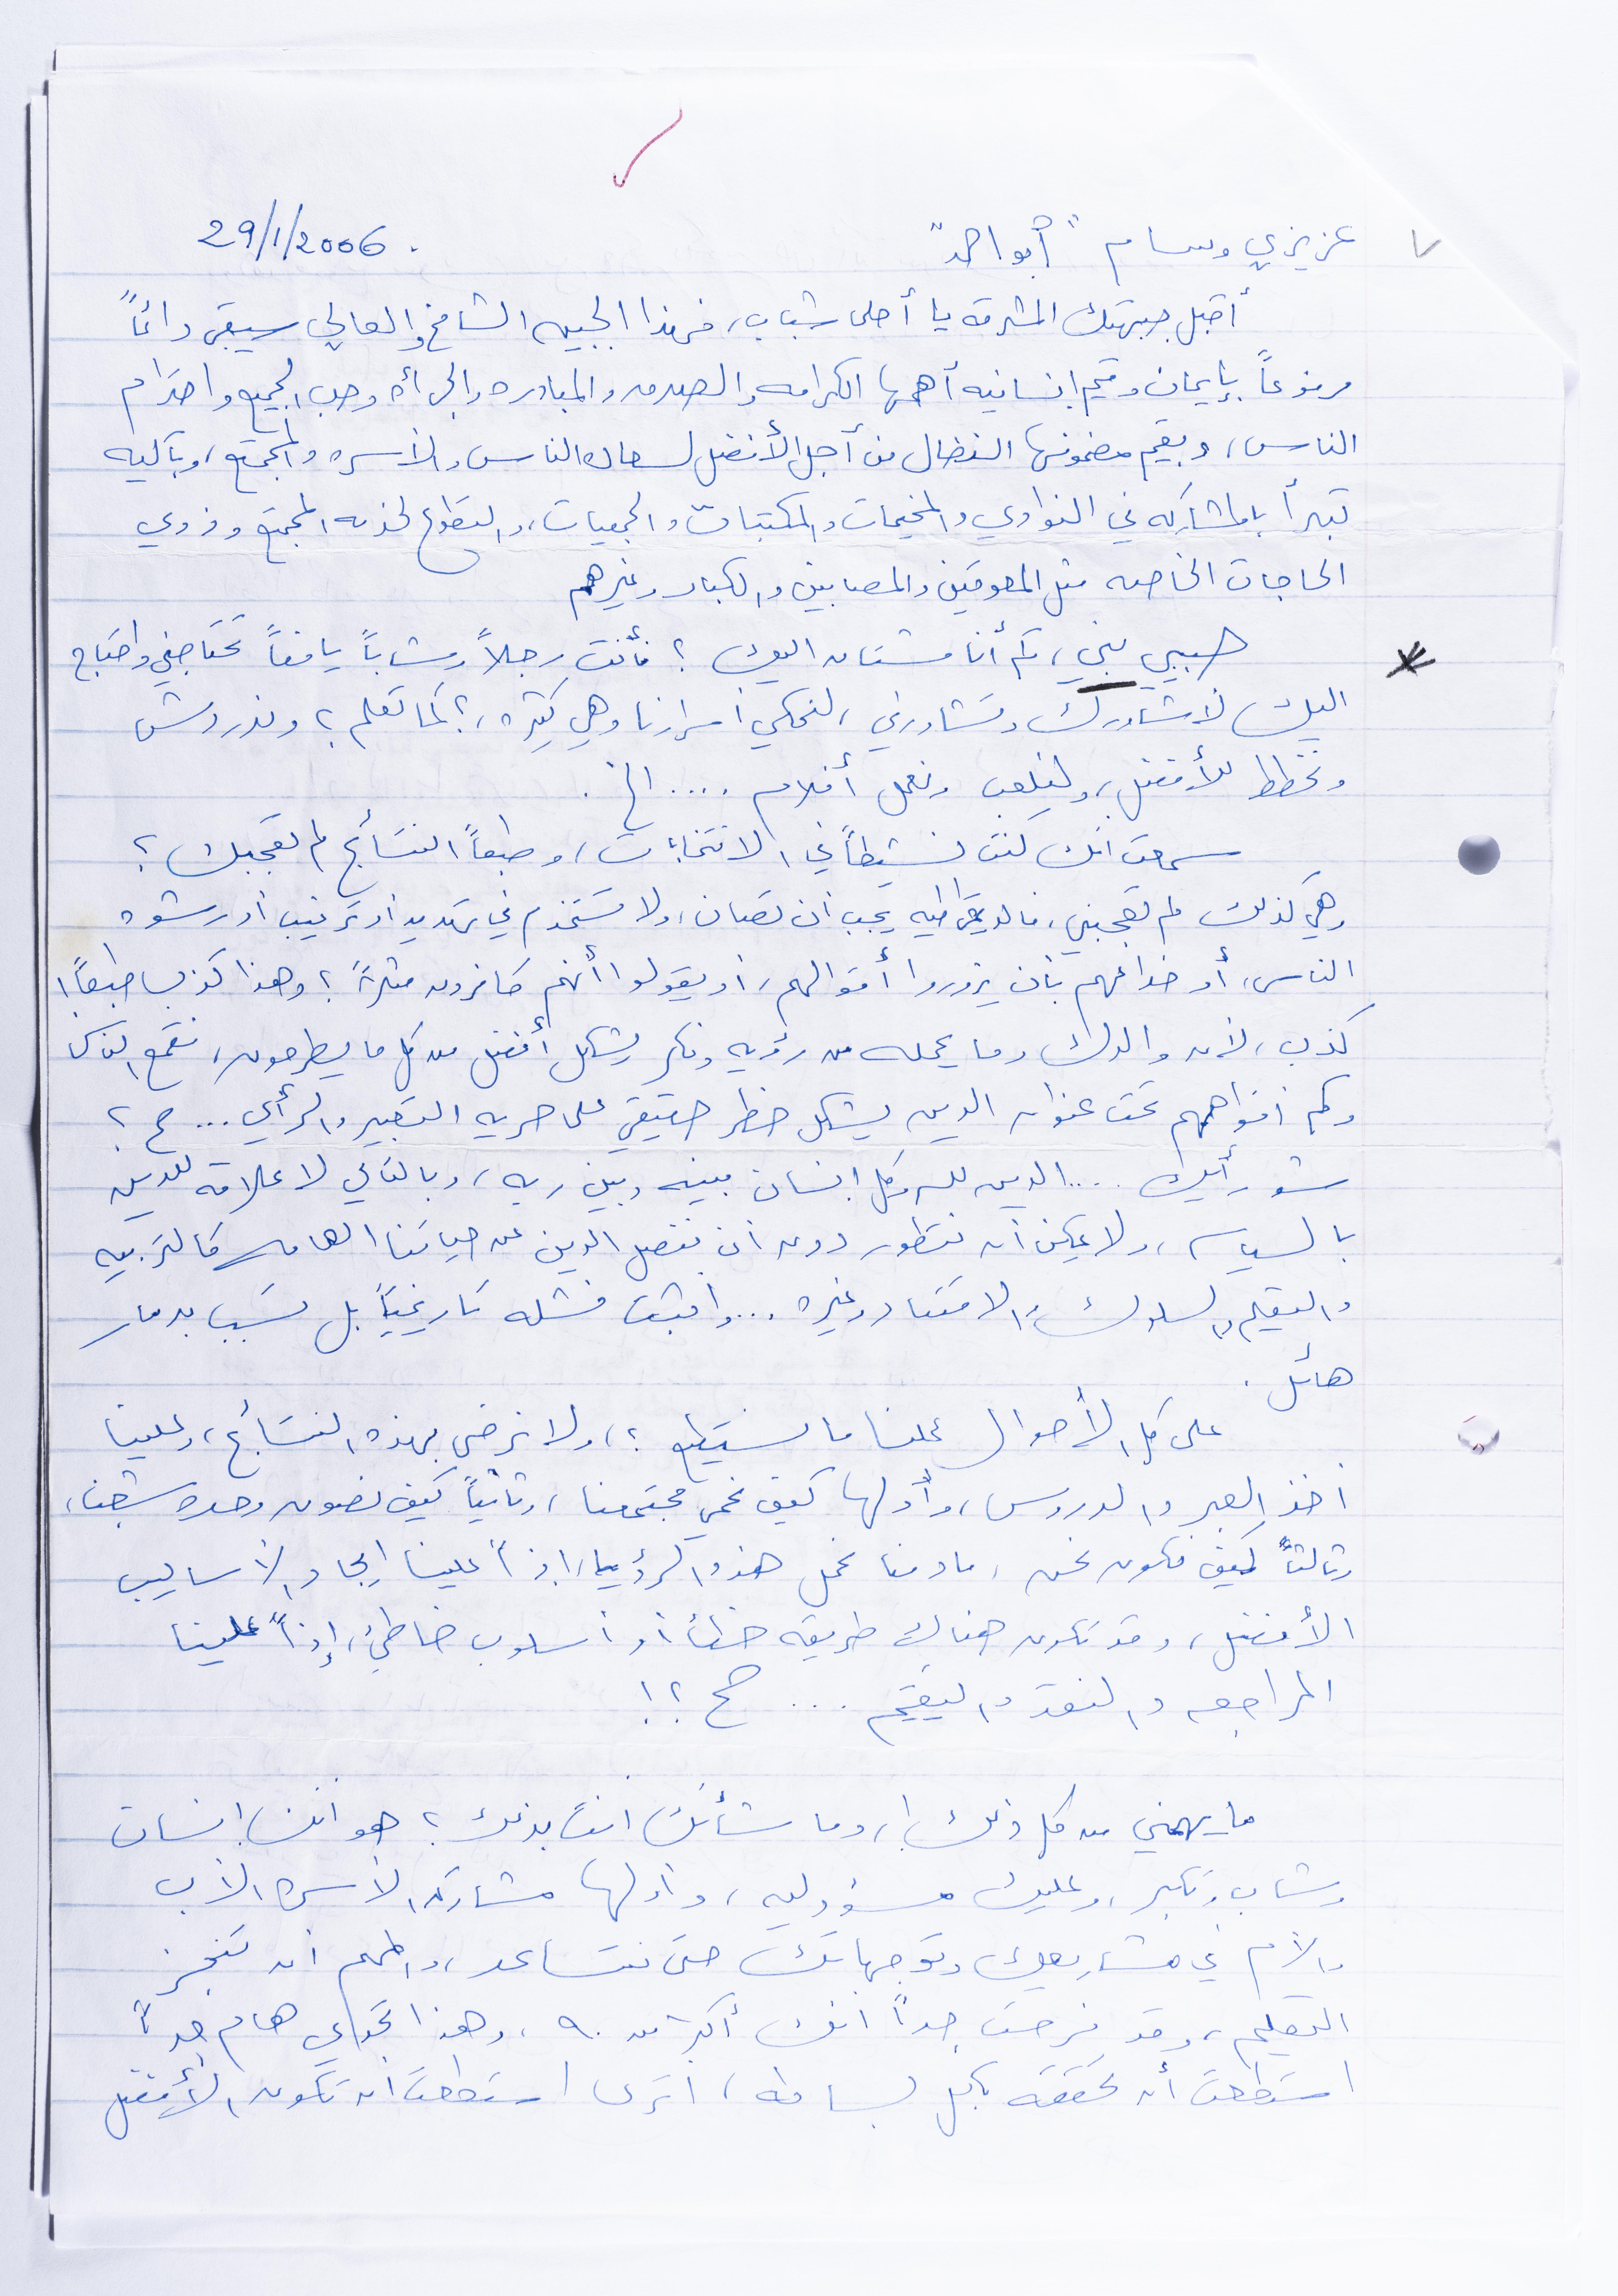 عزيزي وسام "أبو احمد"
29/1/2006.
أقبل جبهتك المشرقه يا أحلى شباب، فهذا الجبين الشامخ والعالي سيبقى دائماً
مرفوعاً بإيمان وقيم إنسانيه أهمها الكرامه والصدق والمبادره والجرأه وحب الجميع واحترام
الناس، وبقيم مضمونها النضال من أجل الأفضل لسعادة الناس والأسره والمجتمع، وبآليه
تبدأ بالمشاركه في النوادي والمخيمات والمكتبات والجمعيات، والتطوع لخدمه المجتمع وذوي
الحاجات الخاصه مثل المعوقين والمصابين والكبار وغيرهم
حبيبي بني، كم أنا مشتاق اليك ؟ فأنت رجلاً وشاباً يافعاً تحتاجني واحتاج
اليك لأشاورك وتشاورني، لنحكي أسرارنا وهي كثيره، ؟ كما تعلم ؟ وندردش
ونخطط للأفضل، ولنلعب ونعمل أفلام .... الخ.
سمعت انك كنت نشيطاً في الانتخابات، وطبعاً النتائج لم تعجبك ؟
وهي كذلك لم تعجبني، فالديمقراطيه يجب أن تصان، ولا تستخدم في تهديد أو ترغيب أو رشوه
الناس، أو خداعهم بأن يزوروا أقوالهم، أو يقولوا أنهم كافرون مثلاً ؟ وهذا كذب طبعاً!
كذب، لأن والدك وما يحمله من رؤيه وفكر يشكل أفضل من كل ما يطرحون، فقمع الناس
وكم افواههم تحت عنوان الدين يشكل خطر حقيقي على حريه التعبير والرأي ... صح ؟
شو رأيك .... الدين لله وكل إنسان بينه وبين ربه، وبالتالي لا علاقة للدين
بالسياسه، ولا يمكن أن نتطور دون أن نفصل الدين عن حياتنا العامه كالتربيه
والتعليم والسلوك والاقتصاد وغيره ... وأثبتت فشله تاريخياً بل تسبب بدمار
هائل.
على كل الأحوال عملنا ما نستطيع ؟، ولا نرضى بهذه النتائج، وعلينا
أخذ العبر والدروس، وأولها كيف نحمي مجتمعنا، وثانياً كيف نصون وحدة شعبنا،
وثالثاً كيف نكون نحن، ما دمنا نحمل هذه الرؤيا، إذاً علينا إيجاد الأساليب
الأفضل، وقد تكون هناك طريقه خطأ أو أسلوب خاطئ، إذاً علينا
المراجعه والنقد والتقييم .... صح ؟!
ما يهمني من كل ذلك!، وما شأنك انت بذلك ؟ هو انك إنسان
وشاب وتكبر، وعليك مسؤوليه، وأولها مشاركه الأسره الأب
والأم في مشاريعك وتوجهاتك حتى نتساعد، والمهم أن تنجز
التعليم، وقد فرحت جداً انك أكثر من ٩٠، وهذا تحدي هام جداً
استطعت أن تحققه بكل بساطه، أترى استطعت أن تكون الأفضل